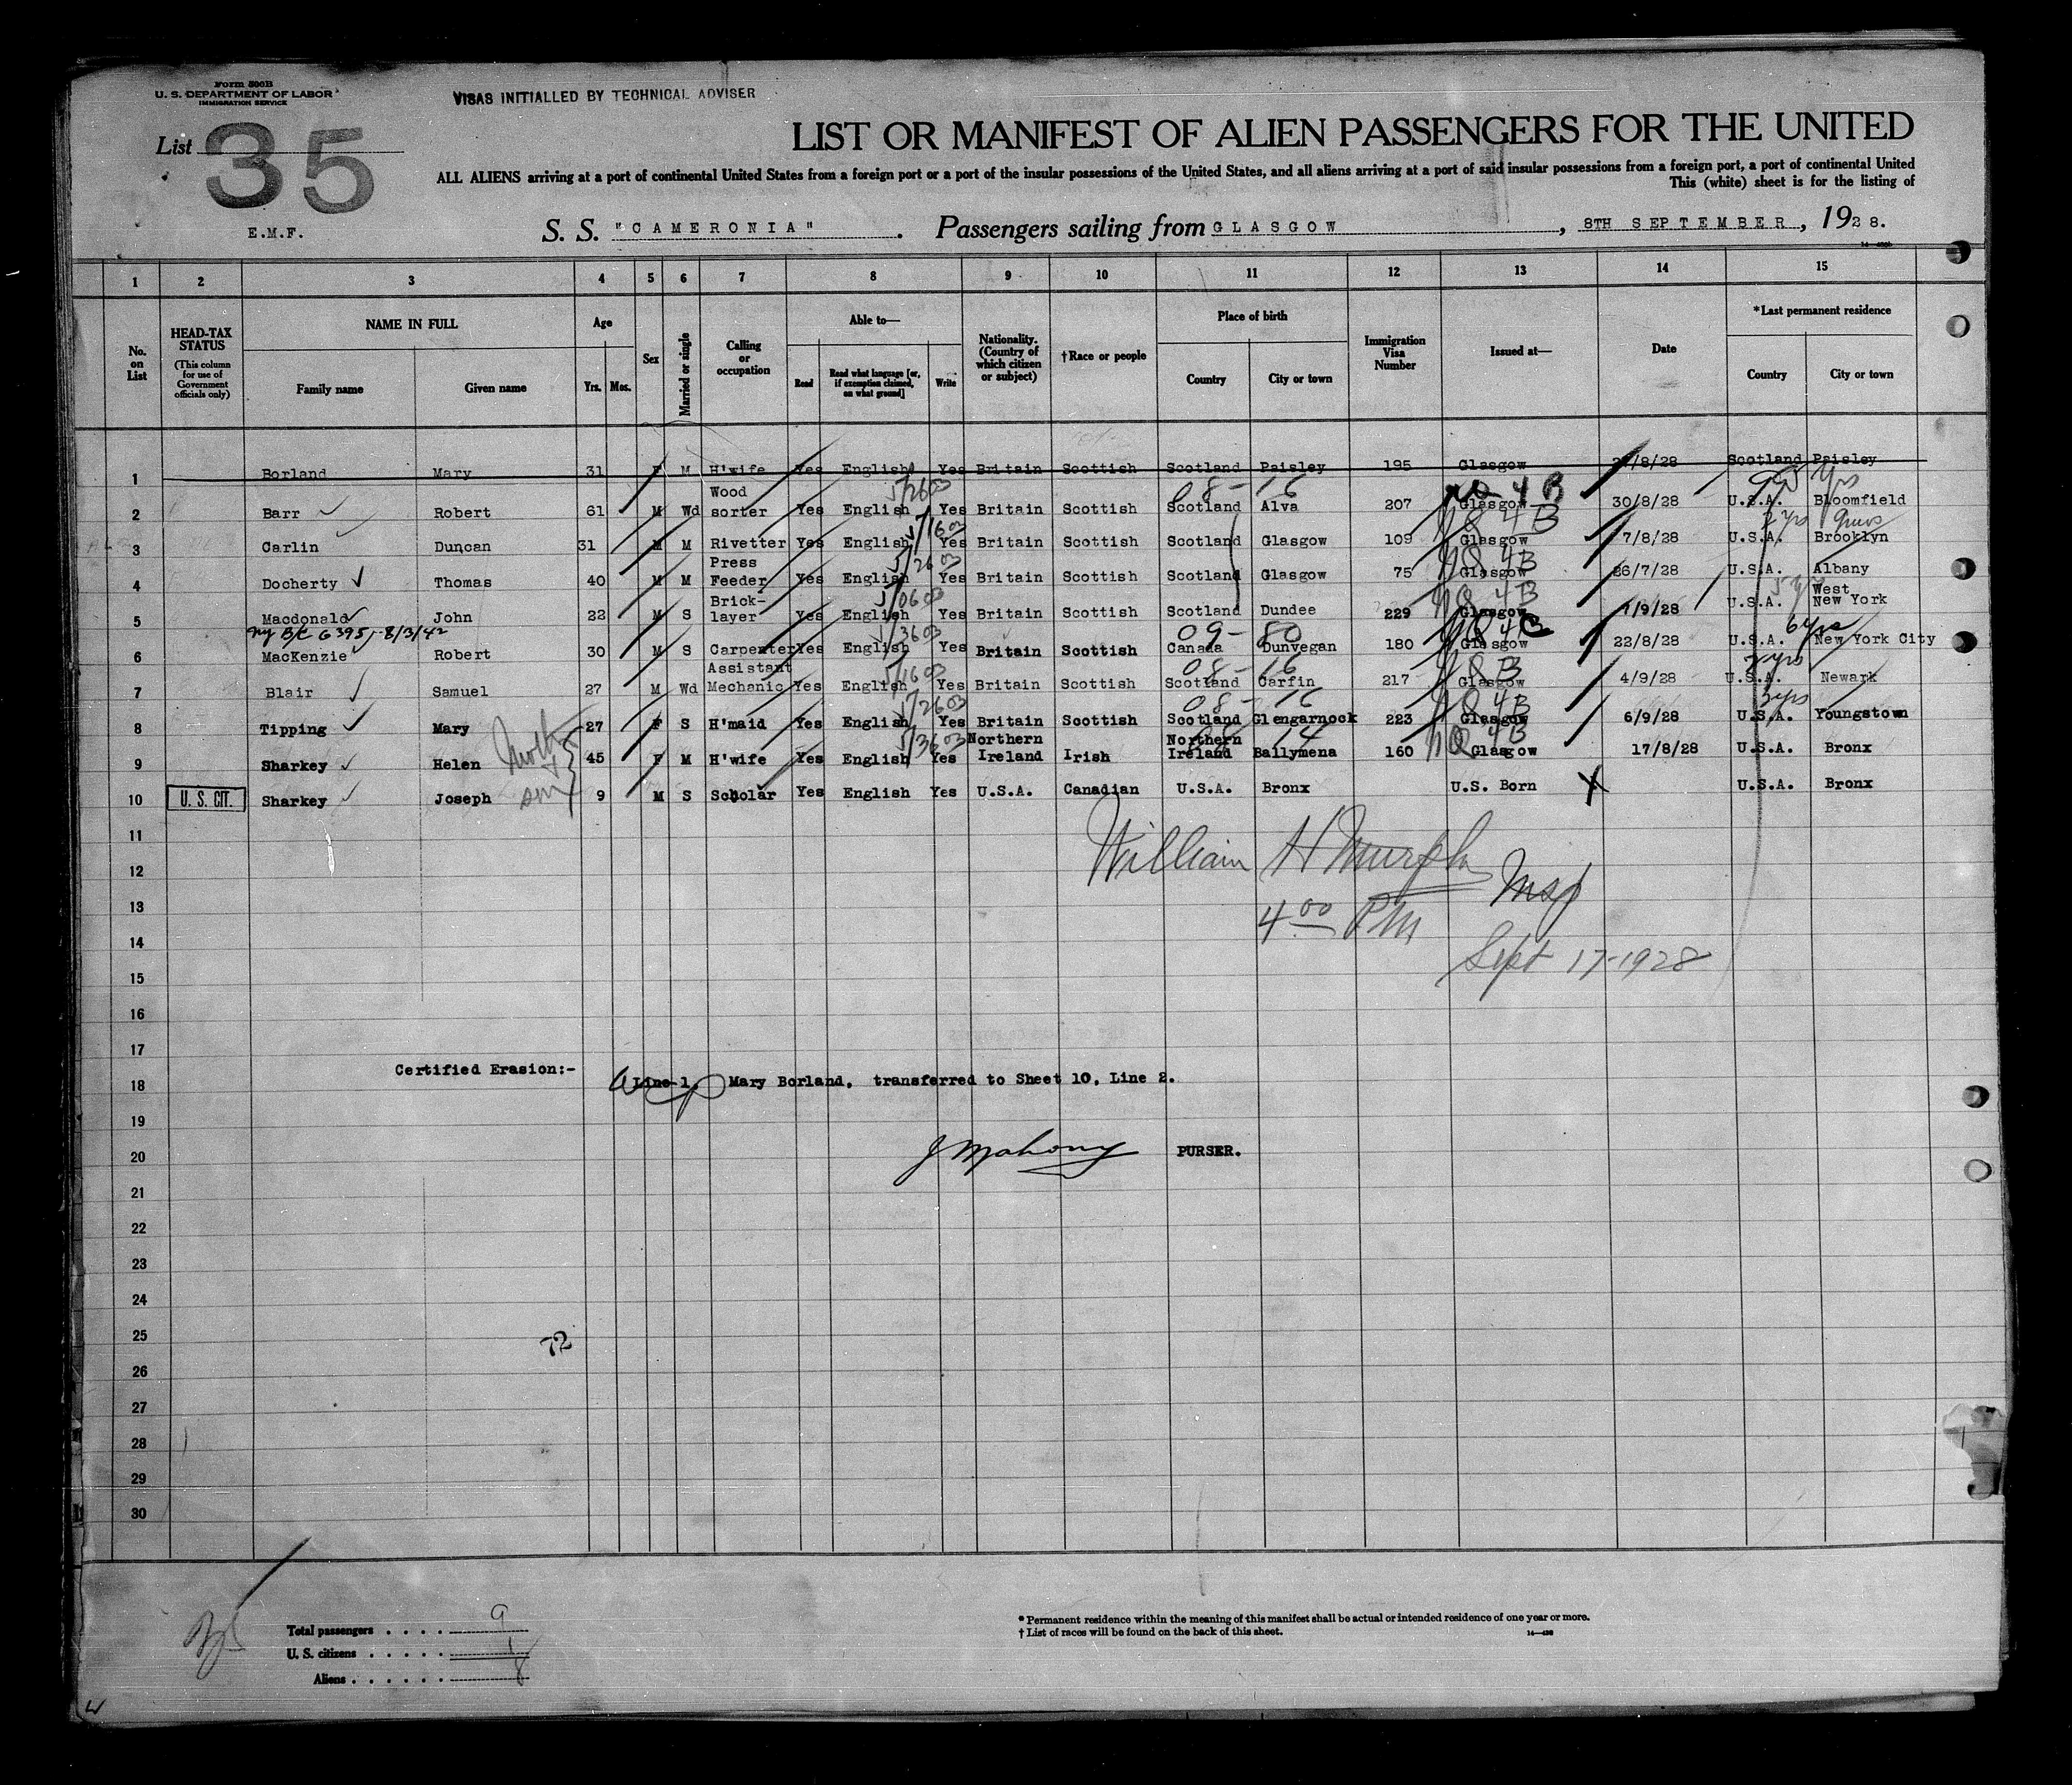 Form 500B
U. S. DEPARTMENT OF LABOR
IMMIGRATION SERVICE
VISAS INITIALLED BY TECHNICAL ADVISER
List 35
LIST OR MANIFEST OF ALIEN PASSENGERS FOR THE UNITED
ALL ALIENS arriving at a port of continental United States from a foreign port or a port of the insular possessions of the United States, and all aliens arriving at a port of said insular possessions from a foreign port, a port of continental United
This (white) sheet is for the listing of
E.M.F.
S. S. "CAMERONIA". Passengers sailing from GLASGOW, 8TH SEPTEMBER, 1928.
1 2 3 4 5 6 7 8 9 10 11 12 13 14 15
No. on List
HEAD-TAX STATUS (This column for use of Government officials only)
NAME IN FULL Family name Given name
Age Yrs. Mos.
Sex
Married or single
Calling or occupation
Able to— Read Read what language [or, if exemption claimed, on what ground] Write
Nationality. (Country of which citizen or subject)
†Race or people
Place of birth Country City or town
Immigration Visa Number
Issued at—
Date
*Last permanent residence Country City or town
1 Borland Mary 31 F M H'wife Yes English Yes Britain Scottish Scotland Paisley 195 Glasgow /8/28 Scotland Paisley
2 Barr Robert 61 M Wd Wood sorter Yes English Yes Britain Scottish Scotland Alva 207 Glasgow 30/8/28 U.S.A. Bloomfield
3 Carlin Duncan 31 M M Rivetter Yes English Yes Britain Scottish Scotland Glasgow 109 Glasgow 7/8/28 U.S.A. Brooklyn
4 Docherty Thomas 40 M M Press Feeder Yes English Yes Britain Scottish Scotland Glasgow 75 Glasgow 26/7/28 U.S.A. Albany
5 Macdonald John 22 M S Brick-layer Yes English Yes Britain Scottish Scotland Dundee 229 Glasgow /9/28 U.S.A. West New York
ny B/C G395,-8/3/42
6 MacKenzie Robert 30 M S Carpenter Yes English Yes Britain Scottish Canada Dunvegan 180 Glasgow 22/8/28 U.S.A. New York City
09-80 6 yrs
7 Blair Samuel 27 M Wd Assistant Mechanic Yes English Yes Britain Scottish Scotland Carfin 217 Glasgow 4/9/28 U.S.A. Newark
08-16
8 Tipping Mary 27 F S H'maid Yes English Yes Britain Scottish Scotland Glengarnock 223 Glasgow 6/9/28 U.S.A. Youngstown
08-16 3 yrs
9 Sharkey Helen 45 F M H'wife Yes English Yes Northern Ireland Irish Northern Ireland Ballymena 160 Glasgow 17/8/28 U.S.A. Bronx
10 U. S. CIT. Sharkey Joseph son 9 M S Scholar Yes English Yes U.S.A. Canadian U.S.A. Bronx U.S. Born X U.S.A. Bronx
11
William H Murphy
12
Insp
13
4 00 PM
14
Sept 17-1928
15
16
17
Certified Erasion:-
18 Line 1, Mary Borland, transferred to Sheet 10, Line 2.
19
20 J Mahony PURSER.
21
22
23
24
25
72
26
27
28
29
30
Total passengers . . . . 9
U. S. citizens . . . . . 1
Aliens . . . . . . 8
* Permanent residence within the meaning of this manifest shall be actual or intended residence of one year or more.
† List of races will be found on the back of this sheet.